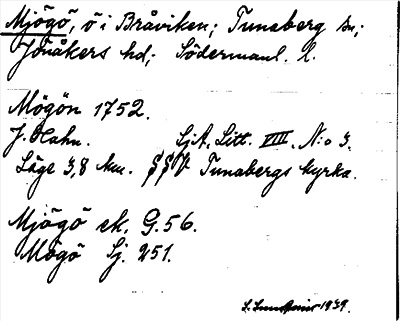 Mjögö, ö i Bråviken; Tunaberg sn;
Jönåkers hd; Södermanl. l.
Mögön 1752.
J. Hahn. SjA. Litt. VIII. N:o 3.
Läge 3,8 km. SSV Tunabergs kyrka.
Mjögö ek. G.56.
Mögö Sj. 251.
1939.